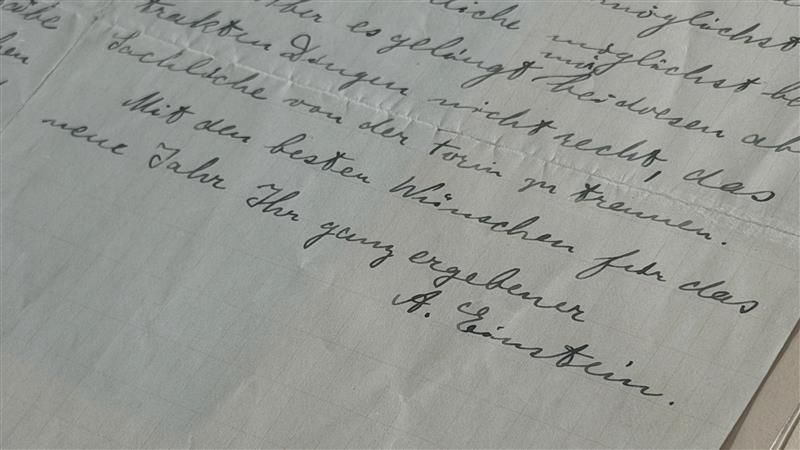 möglichst
aber es gelingt mir bei diesen ab
trakten Dingen nicht recht, das
Sachliche von der Form zu trennen.
Mit den besten Wünschen für das
neue Jahr Ihr ganz ergebener
A. Einstein.